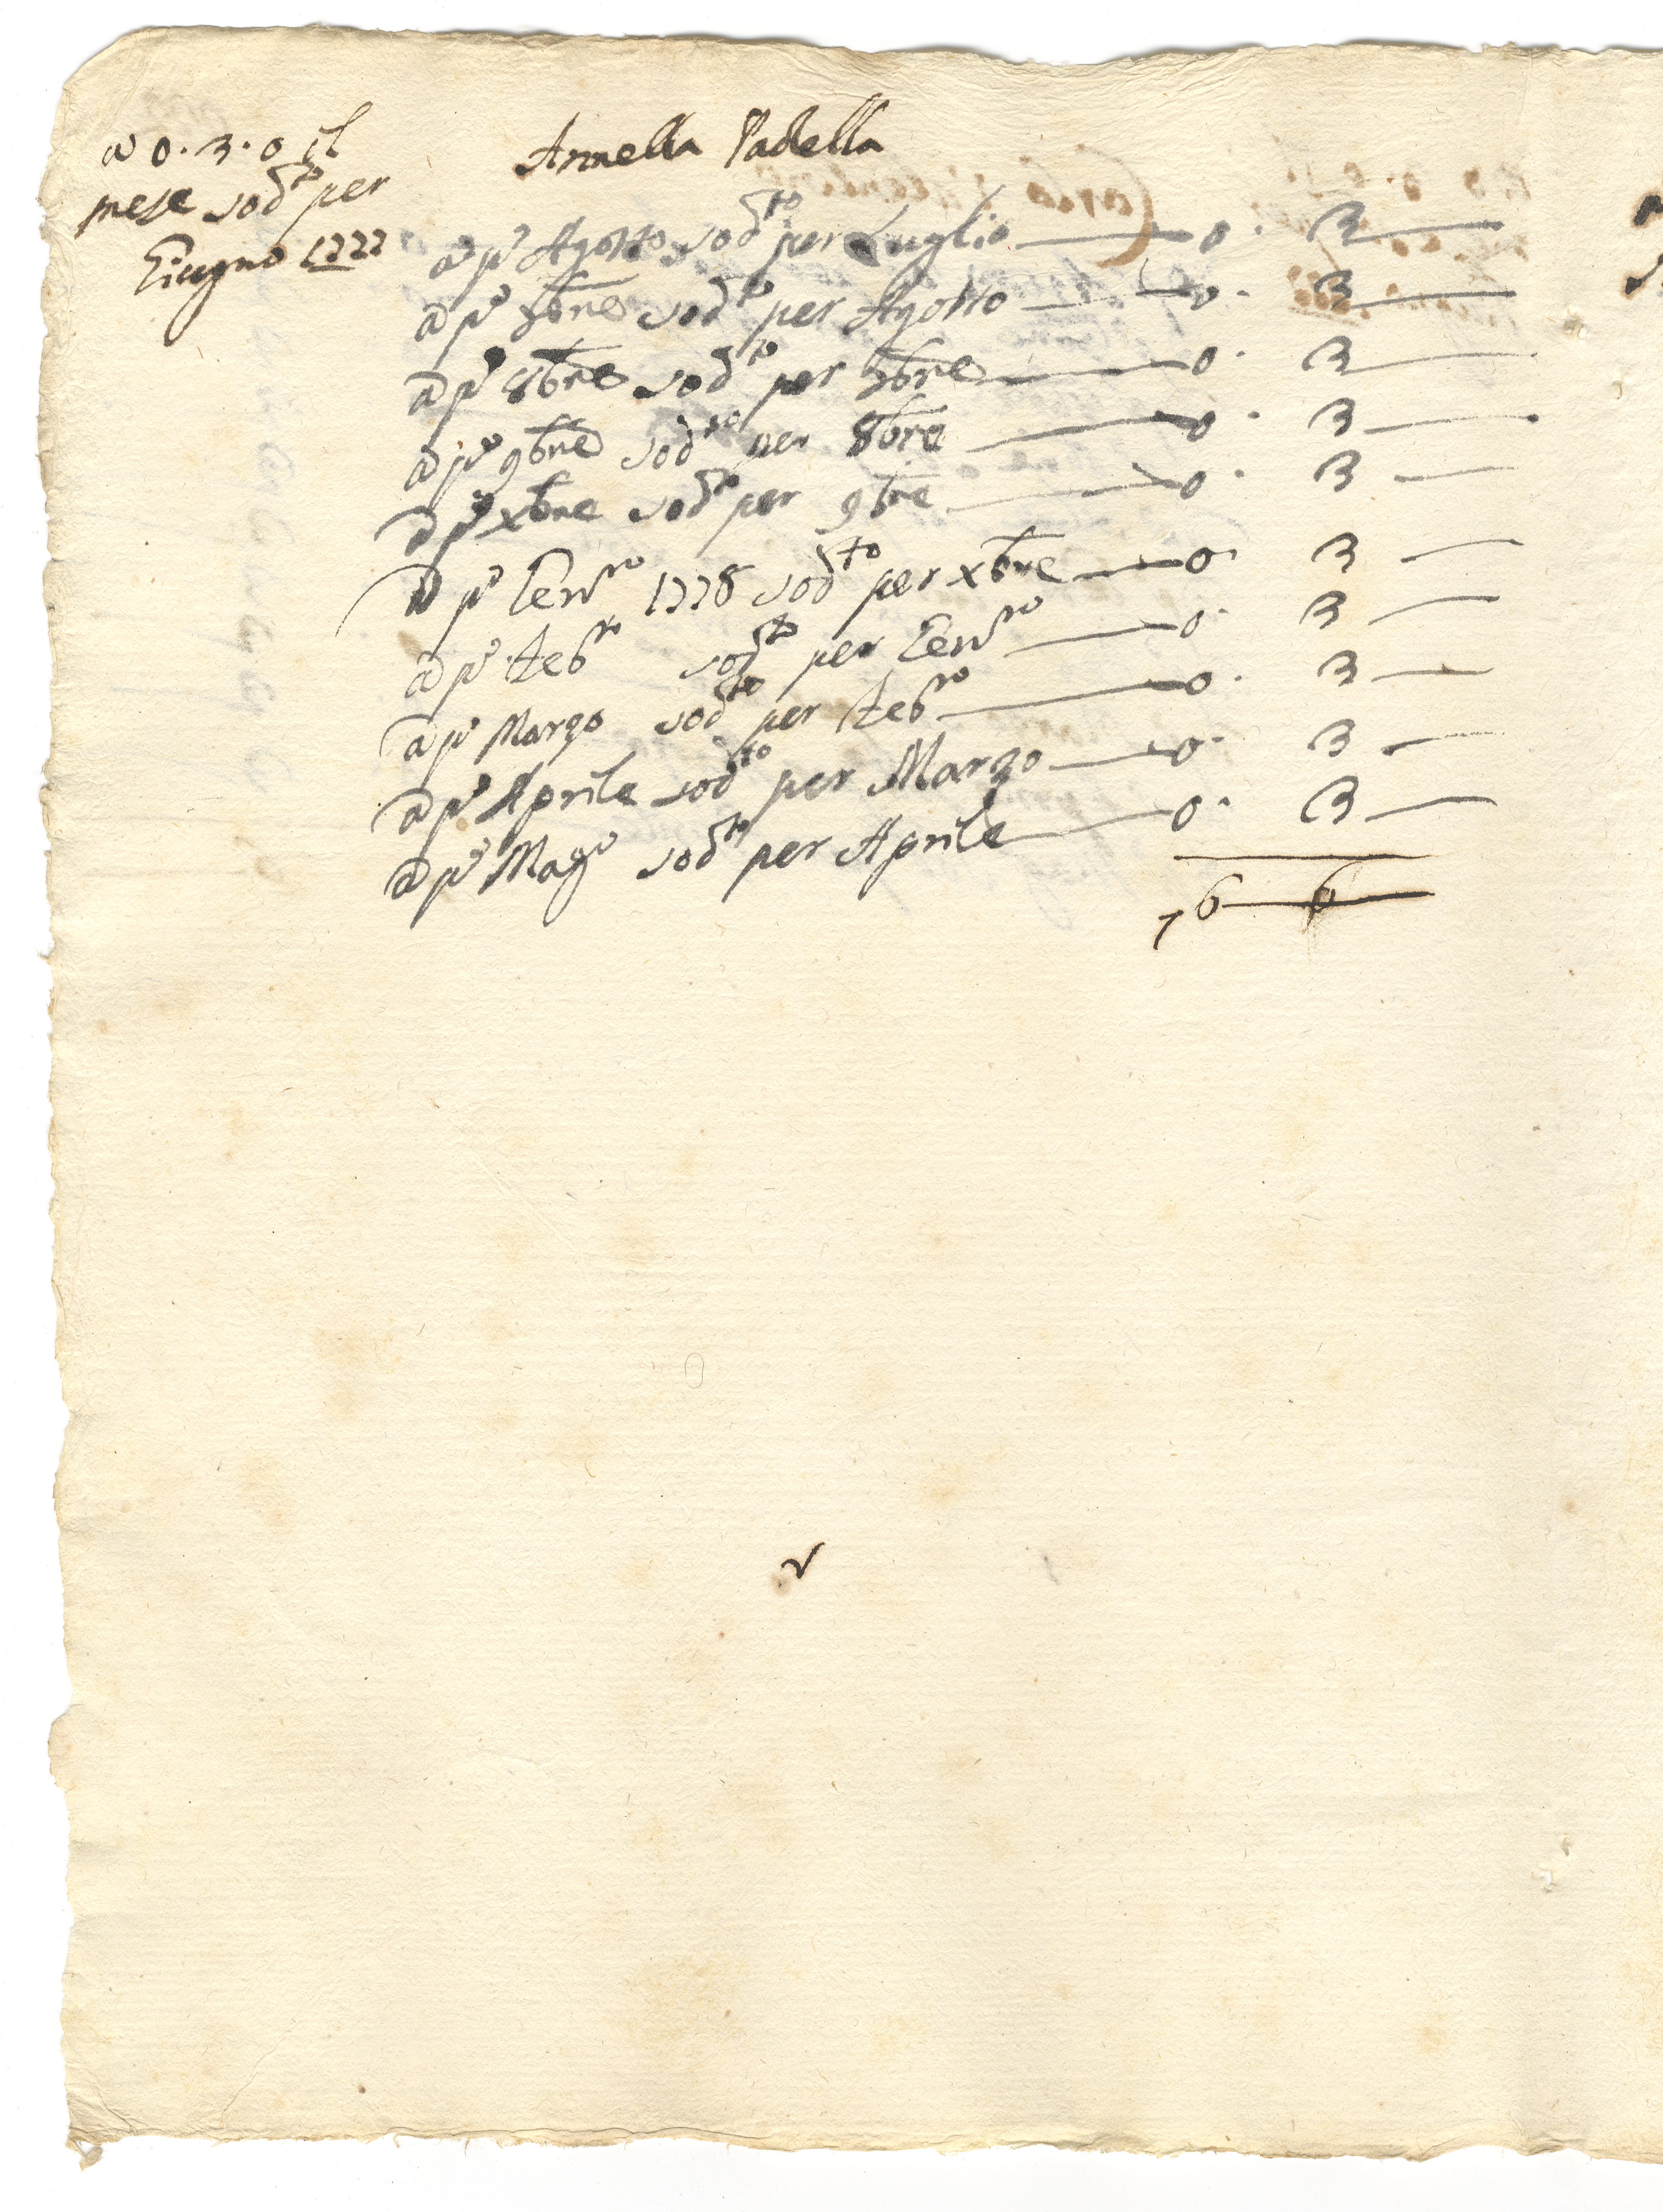 a 0. 3. 0 il
mese sod.to per
Giugno 1777
Annella Padella
a p.º Agosto sod.to per Luglio — 0. 3 —
a p.º 7bre sod.to per Agosto — 0. 3 —
a p.º 8bre sod.to per 7bre — 0. 3 —
a p.º 9bre sod.to per 8bre — 0. 3 —
a p.º xbre sod.to per 9bre — 0. 3 —
a p.º Gen.ro 1778 sod.to per xbre — 0. 3 —
a p.º Feb.ro sod.to per Gen.ro — 0. 3 —
a p.º Marzo sod.to per Feb.ro — 0. 3 —
a p.º Aprile sod.to per Marzo — 0. 3 —
a p.º Mag.º sod.to per Aprile — 0. 3 —
6 — 0 —